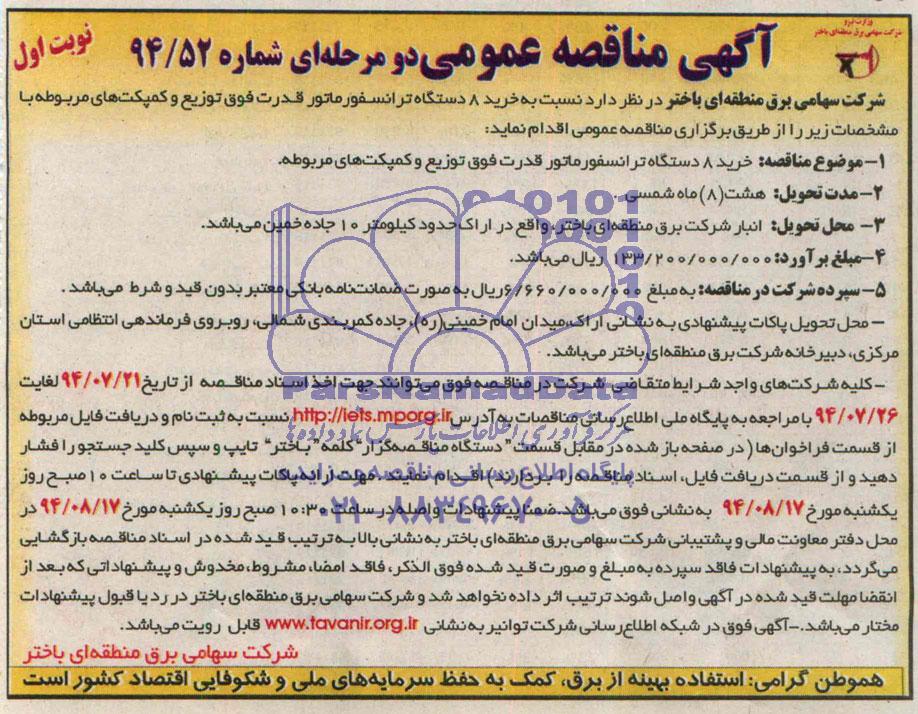 وزارت نیرو
شرکت سهامی برق منطقه‌ای باختر
آگهی مناقصه عمومی دو مرحله‌ای شماره ۹۴/۵۲
نوبت اول
شرکت سهامی برق منطقه‌ای باختر در نظر دارد نسبت به خرید ۸ دستگاه ترانسفورماتور قدرت فوق توزیع و کمپکت‌های مربوطه با
مشخصات زیر را از طریق برگزاری مناقصه عمومی اقدام نماید:
۱- موضوع مناقصه: خرید ۸ دستگاه ترانسفورماتور قدرت فوق توزیع و کمپکت‌های مربوطه.
۲- مدت تحویل: هشت (۸) ماه شمسی
۳- محل تحویل: انبار شرکت برق منطقه‌ای باختر، واقع در اراک حدود کیلومتر ۱۰ جاده خمین می‌باشد.
۴- مبلغ برآورد: ۱۳۳/۲۰۰/۰۰۰/۰۰۰ ریال می‌باشد.
۵- سپرده شرکت در مناقصه: به مبلغ ۶/۶۶۰/۰۰۰/۰۰۰ ریال به صورت ضمانت‌نامه بانکی معتبر بدون قید و شرط می‌باشد.
- محل تحویل پاکات پیشنهادی به نشانی اراک، میدان امام خمینی (ره)، جاده کمربندی شمالی، روبروی فرماندهی انتظامی استان
مرکزی، دبیرخانه شرکت برق منطقه‌ای باختر می‌باشد.
- کلیه شرکت‌های واجد شرایط متقاضی شرکت در مناقصه فوق می‌توانند جهت اخذ اسناد مناقصه از تاریخ ۹۴/۰۷/۲۱ لغایت
۹۴/۰۷/۲۶ با مراجعه به پایگاه ملی اطلاع رسانی مناقصات به آدرس http://iets.mporg.ir نسبت به ثبت نام و دریافت فایل مربوطه
از قسمت فراخوان‌ها (در صفحه باز شده در مقابل قسمت "دستگاه مناقصه‌گزار" کلمه "باختر" تایپ و سپس کلید جستجو را فشار
دهید و از قسمت دریافت فایل، اسناد مناقصه را بردارند) اقدام نمایند. مهلت ارایه پاکات پیشنهادی تا ساعت ۱۰ صبح روز
یکشنبه مورخ ۹۴/۰۸/۱۷ به نشانی فوق می‌باشد. ضمنا پیشنهادات واصله در ساعت ۱۰:۳۰ صبح روز یکشنبه مورخ ۹۴/۰۸/۱۷ در
محل دفتر معاونت مالی و پشتیبانی شرکت سهامی برق منطقه‌ای باختر به نشانی بالا به ترتیب قید شده در اسناد مناقصه بازگشایی
می‌گردد، به پیشنهادات فاقد سپرده به مبلغ و صورت قید شده فوق الذکر، فاقد امضا، مشروط، مخدوش و پیشنهاداتی که بعد از
انقضا مهلت قید شده در آگهی واصل شوند ترتیب اثر داده نخواهد شد و شرکت سهامی برق منطقه‌ای باختر در رد یا قبول پیشنهادات
مختار می‌باشد.- آگهی فوق در شبکه اطلاع رسانی شرکت توانیر به نشانی www.tavanir.org.ir قابل رویت می‌باشد.
شرکت سهامی برق منطقه‌ای باختر
هموطن گرامی: استفاده بهینه از برق، کمک به حفظ سرمایه‌های ملی و شکوفایی اقتصاد کشور است
ParsNamadData
پایگاه اطلاع رسانی مناقصه و مزایده
۰۲۱-۸۸۳۴۹۶۷۰-۵